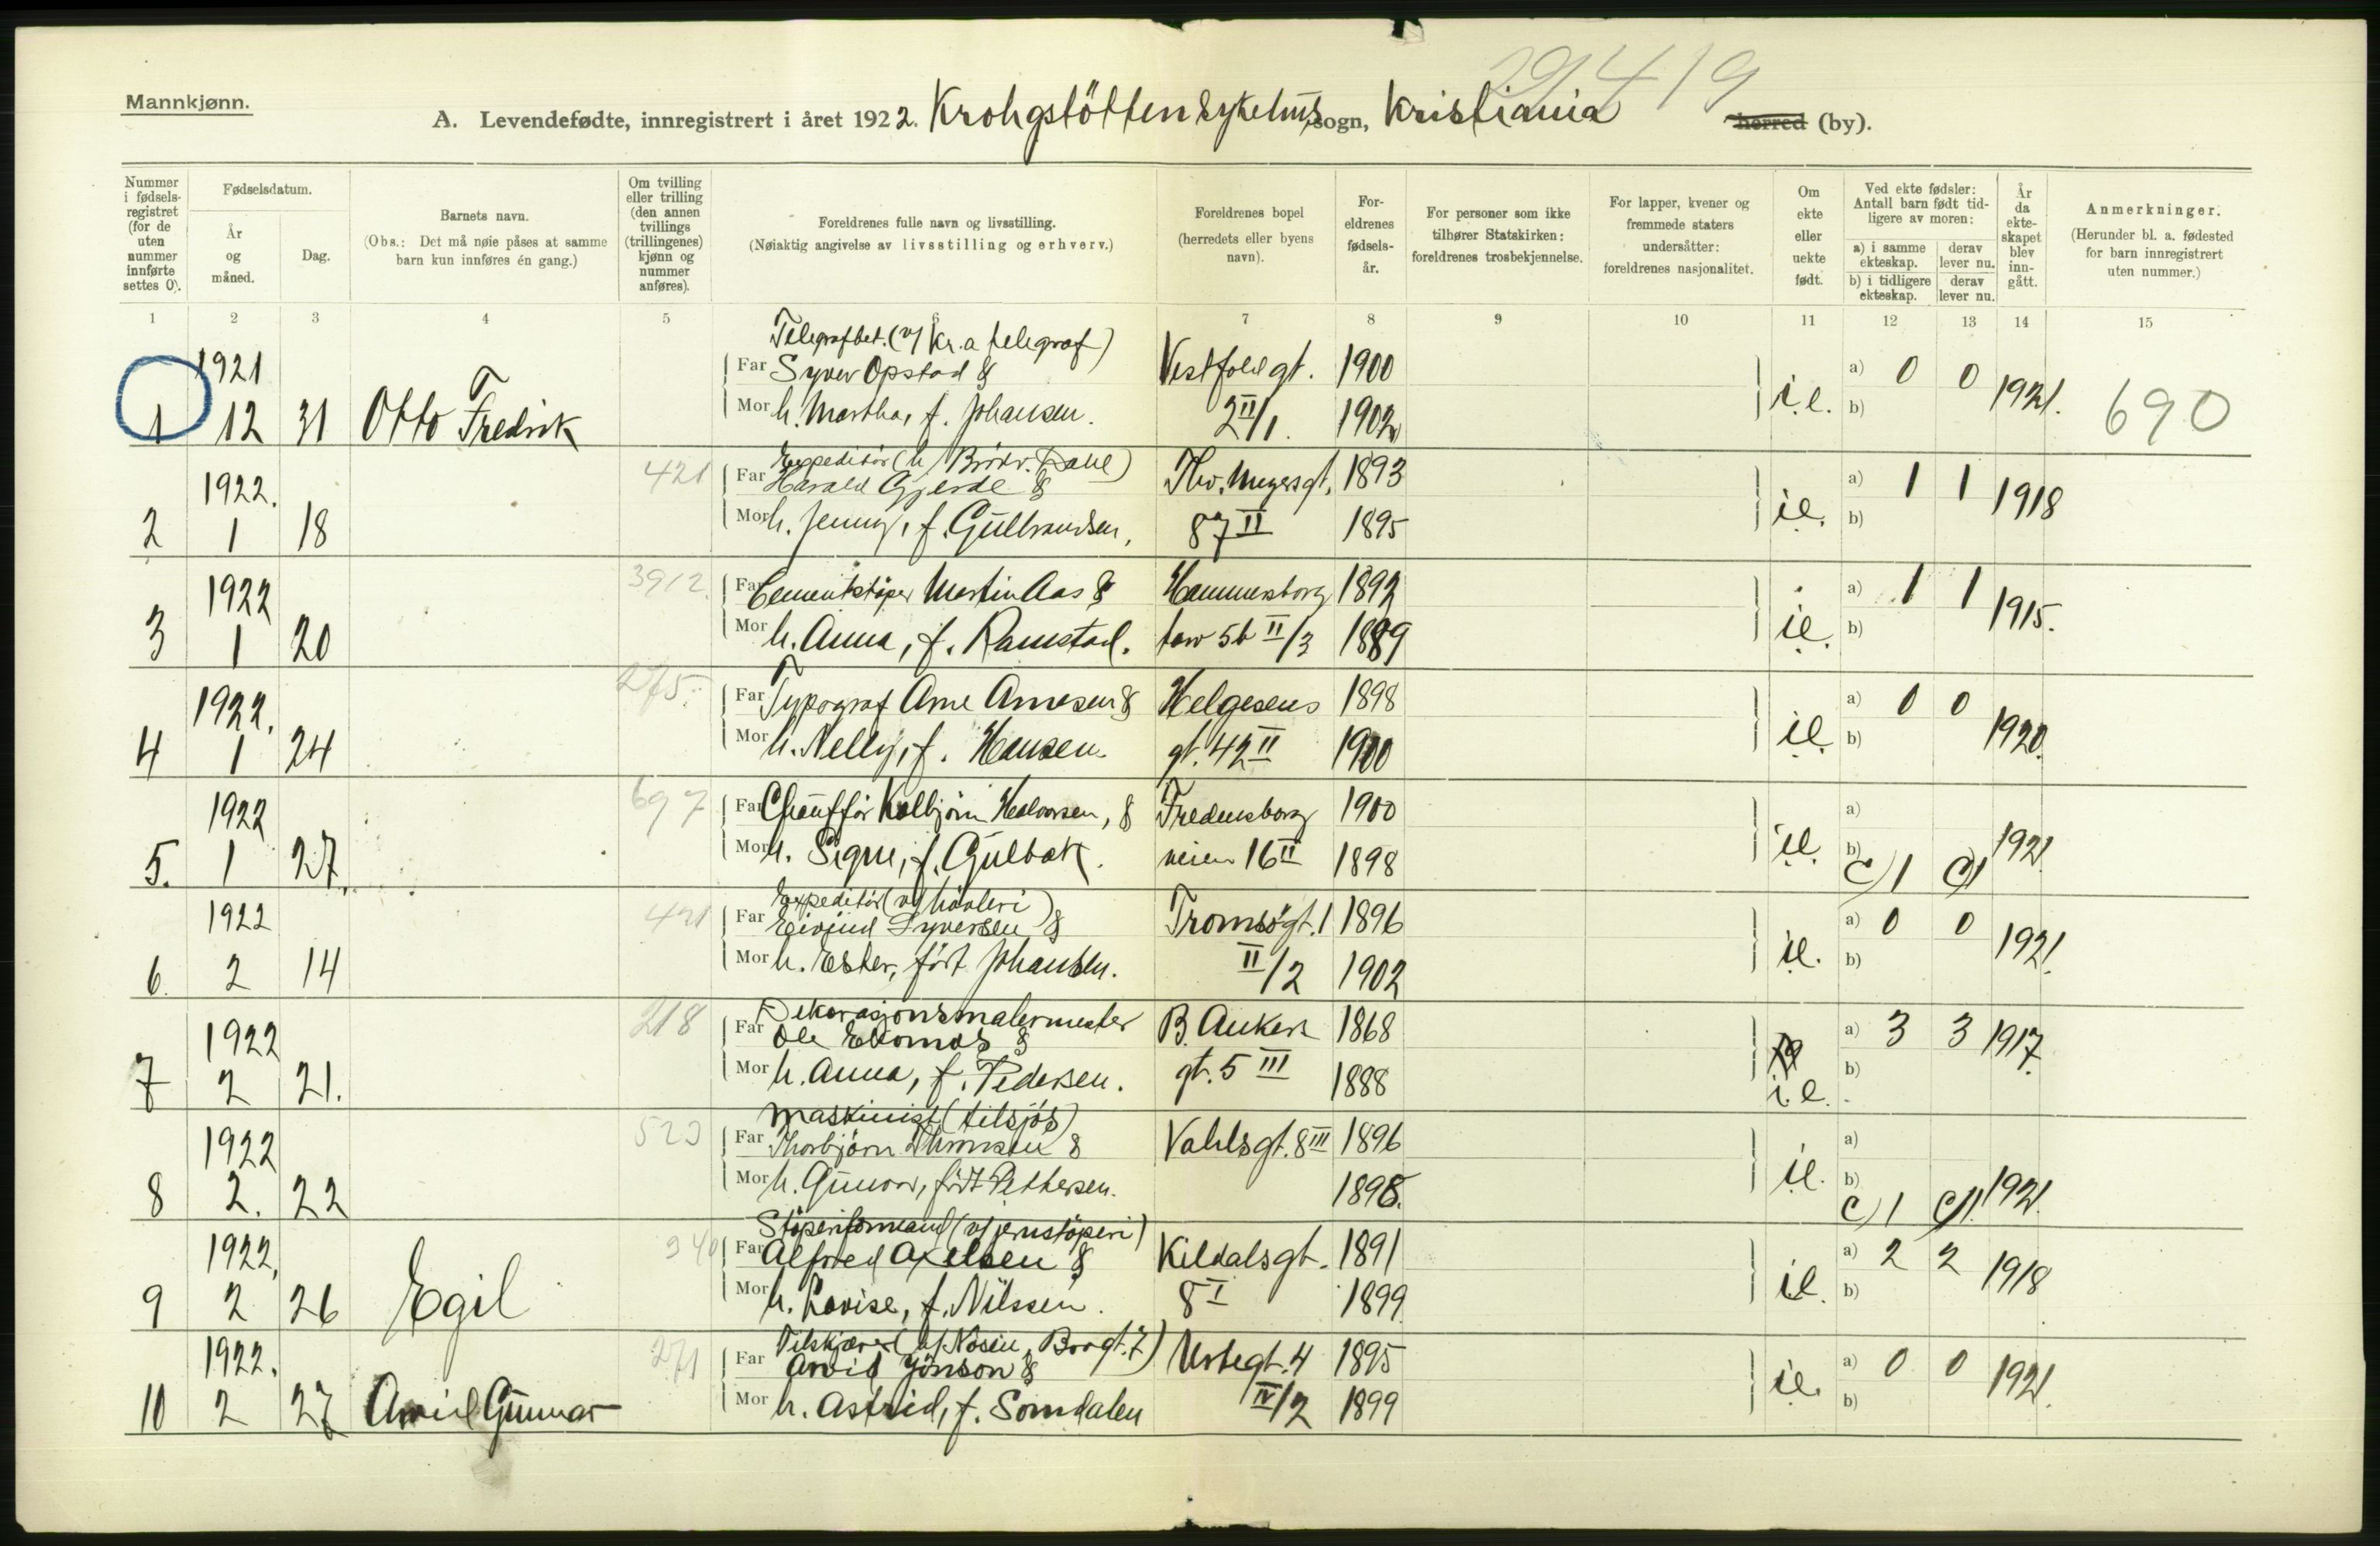 29419
Mannkjønn.
A. Levendefødte, innregistrert i året 1922. Krohgstöttensykehus sogn, Kristiania herred (by).
Nummer i fødsels-registret (for de uten nummer innførte settes 0).
Fødselsdatum.
År og måned.
Dag.
Barnets navn.
(Obs.: Det må nøie påses at samme barn kun innføres én gang.)
Om tvilling eller trilling (den annen tvillings (trillingenes) kjønn og nummer anføres).
Foreldrenes fulle navn og livsstilling.
(Nøiaktig angivelse av livsstilling og erhverv.)
Foreldrenes bopel (herredets eller byens navn).
For-eldrenes fødsels-år.
For personer som ikke tilhører Statskirken: foreldrenes trosbekjennelse.
For lapper, kvener og fremmede staters undersåtter: foreldrenes nasjonalitet.
Om ekte eller uekte født.
Ved ekte fødsler: Antall barn født tid-ligere av moren:
a) i samme ekteskap. derav lever nu.
b) i tidligere ekteskap. derav lever nu.
År da ekte-skapet blev inn-gått.
Anmerkninger.
(Herunder bl. a. fødested for barn innregistrert uten nummer.)
1 2 3 4 5 6 7 8 9 10 11 12 13 14 15
Telegrafbet. (v/ Kr.a telegraf)
1921 Far Syver Opstad & Vestfold gt. 1900 a) 0 0
1 12 31 Otto Fredrik Mor h. Martha, f. Johansen. 2 II/1. 1902 i.e. b) 1921. 690
Expeditör (h/ Brödr. Dahl)
1922. 421 Far Harald Gjerde & Thv. Meyersgt. 1893 a) 1 1
2 1 18 Mor h. Jenny, f. Gulbrandsen, 87 II 1895 ie. b) 1918
1922 3912. Far Cementstöper Martin Aas & Hammersborg 1892 a) 1 1
3 1 20 Mor h. Anna, f. Ramstad. torv 5b II/3 1889 ie. b) 1915.
1922. 275. Far Typograf Arne Arnesen & Helgesens 1898 a) 0 0
4 1 24 Mor h. Nelly, f. Hansen. gt. 42 II 1900 ie. b) 1920.
1922 697 Far Chaufför Kolbjörn Halvorsen, & Fredensborg 1900 a)
5. 1 27. Mor h. Signe, f. Gulbæk. veien 16 II 1898 ie. b) c) 1 c) 1 1921.
Expeditör (v/ høvleri)
1922 421 Far Eivind Syversen & Tromsögt. 1 1896 a) 0 0
6. 2 14 Mor h. Ester, fört Johansen. II/2 1902 ie. b) 1921.
Dekorasjonsmalermester
1922 218 Far Ole Ekornås & B. Ankers 1868 a) 3 3 1917.
7 2 21. Mor h. Anna, f. Pedersen. gt. 5 III 1888 i.e. b)
Maskinist (tilsjös)
1922 523 Far Thorbjörn & Vahlsgt. 8 III 1896 a)
8 2. 22 Mor h. Gunvor, född Pettersen. 1898. ie. b) c) 1 c) 1. 1921.
Støperiformand (v/ jernstöperi)
1922, 340 Far Alfred Axelsen & Kildalsgt. 1891 a) 2 2
9 2 26 Egil Mor h. Lovise, f. Nilssen. 8 I 1899 ie. b) 1918
Tilskjærer (h/ Nosen, Brogt. 7)
1922. 271 Far Arvid Jönson & Urtegt. 4 1895 a) 0 0
10 2 27 Arvid Gunnar Mor h. Astrid, f. Somdalen IV/2 1899 ie. b) 1921.